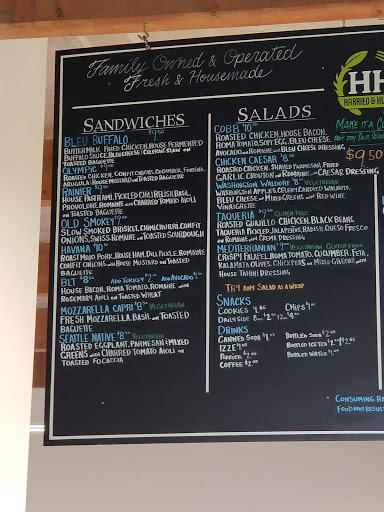 Family Owned & Operated
Fresh & Housemade
SANDWICHES
BLEU BUFFALO $9.50
BUTTERMILK FRIED CHICKEN, HOUSE FERMENTED
BUFFALO SAUCE, BLEU CHEESE CELERY SLAW ON
TOASTED BAGUETTE
OLYMPIC
ROASTED CHICKEN, CONFIT ONIONS, CUCUMBER, FONTINA,
ARUGULA HOUSE MUSTARD ON TOASTED BAGUETTE
RAINIER $9
HOUSE PASTRAMI, PICKLED CHILI RELISH, BASIL,
PROVOLONE, ROMAINE AND CHARRED TOMATO AIOLI
ON TOASTED BAGUETTE
OLD SMOKEY $9
SLOW SMOKED BRISKET, CHIMICHURRI, CONFIT
ONIONS, SWISS, ROMAINE ON TOASTED SOURDOUGH
HAVANA $10
ROAST MOJO PORK, HOUSE HAM, DILL PICKLE, ROMAINE
CONFIT ONIONS WITH HOUSE MUSTARD ON TOASTED
BAGUETTE
BLT $8 ADD TURKEY $2 ADD AVOCADO $1
HOUSE BACON, ROMA TOMATO, ROMAINE AND
ROSEMARY AIOLI ON TOASTED WHEAT
MOZZARELLA CAPRI $8 VEGETARIAN
FRESH MOZZARELLA, BASIL ON TOASTED
BAGUETTE
SEATTLE NATIVE $8 VEGETARIAN
ROASTED EGGPLANT, PARMESAN & MIXED
GREENS WITH CHARRED TOMATO AIOLI ON
TOASTED FOCACCIA
SALADS
COBB $10
ROASTED CHICKEN, HOUSE BACON,
ROMA TOMATO, SOFT EGG, BLEU CHEESE,
AVOCADO AND ROMAINE WITH BLEU CHEESE DRESSING
CHICKEN CAESAR $8
ROASTED CHICKEN, SHAVED PARMESAN, FRIED
GARLIC CROUTON AND ROMAINE WITH CAESAR DRESSING
WASHINGTON WALDORF $8 VEGETARIAN
WASHINGTON APPLES, CELERY, CANDIED WALNUTS,
BLEU CHEESE AND MIXED GREENS WITH RED WINE
VINAIGRETTE
TAQUERIA $9 GLUTEN FREE
ROASTED GUAJILLO CHICKEN, BLACK BEANS,
TAQUERIA PICKLED JALAPEÑOS, RADISH, QUESO FRESCO
AND ROMAINE WITH CREMA DRESSING
MEDITERRANEAN $8 VEGETARIAN GLUTEN FREE
CRISPY FALAFEL, ROMA TOMATO, CUCUMBER, FETA,
KALAMATA OLIVE, CHICKPEAS AND MIXED GREENS WITH
HOUSE TAHINI DRESSING
TRY ANY SALAD AS A WRAP
SNACKS
COOKIES CHIPS
DAILY SIDE
DRINKS
CANNED SODA BOTTLED SODA
IZZE BOTTLED ICETEA
PERRIER BOTTLED WATER
COFFEE $2.00
HH
HARRIED & HU
MAKE IT A CO
$9.50
CONSUMING RA
FOOD MAY RESUL